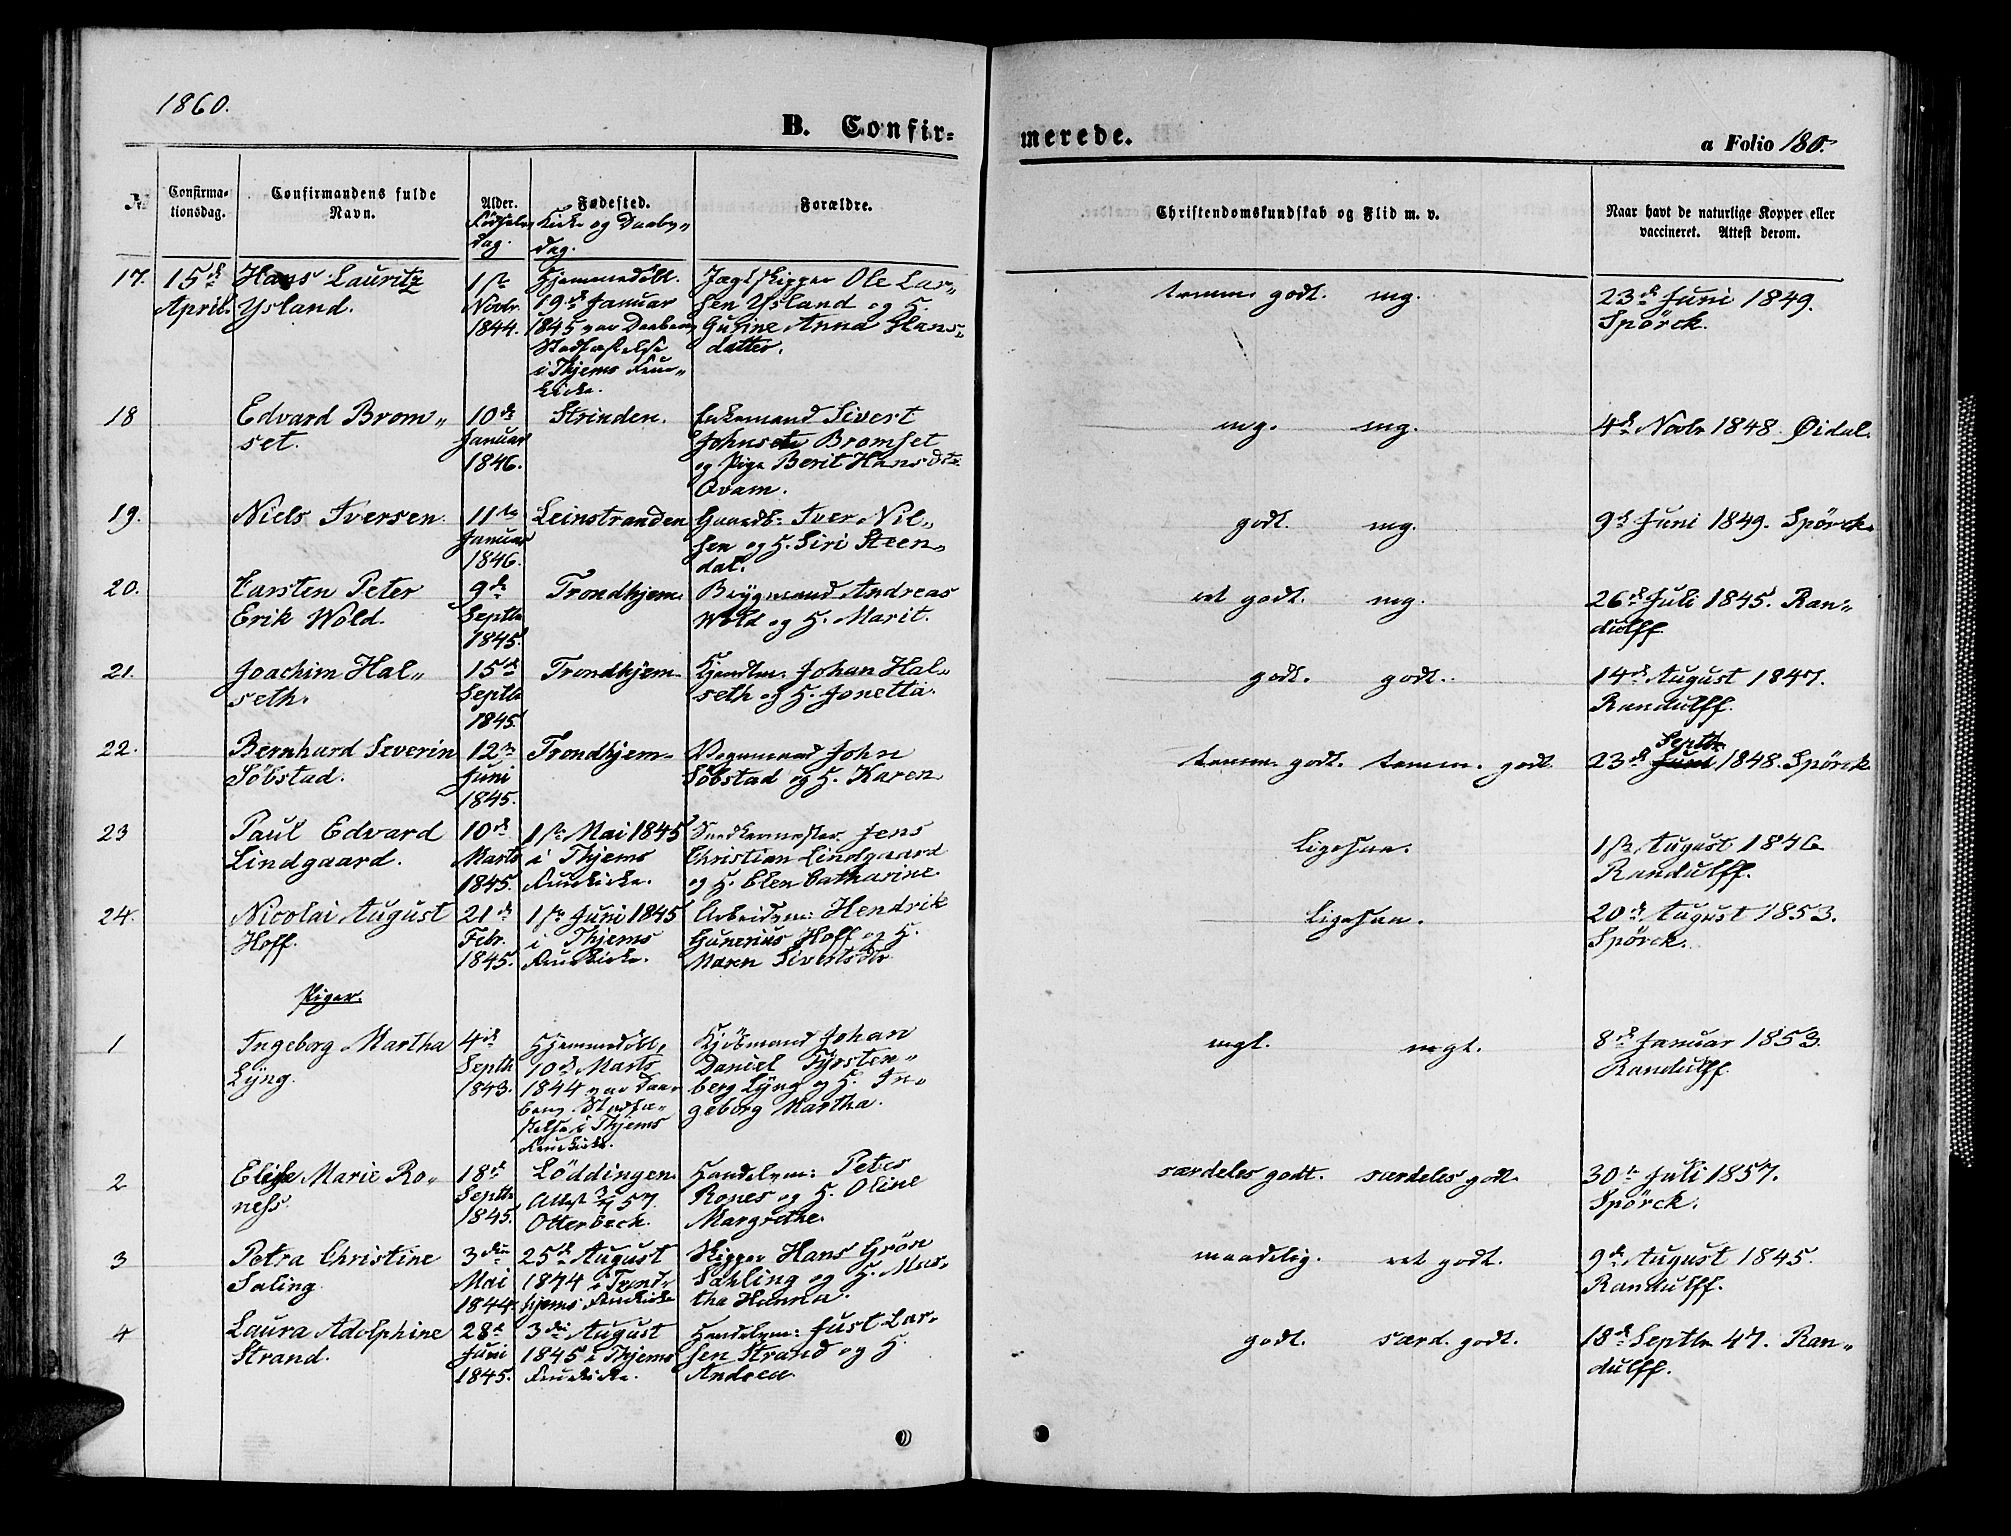 1860.
B. Confir=
merede.
a Folio 180.
N
Confirma=
tionsdag.
Confirmandens fulde
Navn.
Alder.
Fødsels
dag.
Fødested.
Kirke og Daabs„
dag.
Forældre.
Christendomskundskab og Flid m. v.
Naar havt de naturlige Kopper eller
vaccineret. Attest derom.
17.
15de
April.
Hans Lauritz
Ysland.
1ste
Novbr
1844.
Hjemmedøbt.
19de Januar
1845 var Daabens
Stadfæstelse
i Thjems Frue„
kirke.
Jægtskipper Ole Lar„
sen Ysland og H.
Gurine Anna Hans„
datter.
temm. godt. mg.
23de Juni 1849.
Spörck.
18
Edvard Brom„
set.
10de
Januar
1846.
Strinden.
Enkemand Sivert
Johnsen Bromset
og Pige Berit Hansdtr
Qvam.
mg. mg.
4de Novbr 1848. Øidal.
19.
Niels Iversen.
11te
Januar
1846.
Leinstranden
Gaardb: Iver Nil„
sen og H. Siri Steen„
dal.
godt. mg.
9de Juni 1849. Spörck.
20.
Carsten Peter
Erik Wold.
9de
Septbr
1845.
Trondhjem.
Bÿgmand Andreas
Wold og H. Marit.
ret godt. mg.
26de Juli 1845. Ran„
dulff.
21.
Joachim Hal„
seth.
15de
Septbr
1845.
Trondhjem.
Johan Hal„
seth og H. Jonetta.
godt. godt.
14de August 1847.
Randulff.
22.
Bernhard Severin
Söbstad.
12te
Juni
1845.
Trondhjem.
Vognmand John
Söbstad og H. Karen
temm. godt. temm. godt.
Septbr
23de Juni 1848. Spörck
23
Paul Edvard
Lindgaard.
10de
Marts
1845.
1ste Mai 1845
i Thjems
Fruekirke.
Snedkermester Jens
Christian Lindgaard
og H. Elen Catharine.
Ligesaa.
1ste August 1846
Randulff.
24.
Nicolai August
Hoff.
21de
Febr.
1845.
1ste Juni 1845
i Thjems
Fruekirke.
Arbeidsm: Hendrik
Gunerius Hoff og H.
Maren Sivertsdtr
Ligesaa.
20de August 1853.
Spörck.
Piger.
1
Ingeborg Martha
Lÿng.
4de
Septbr
1843.
Hjemmedöbt,
10de Marts
1844 var Daa„
bens Stadfæ„
stelse i Thjems
Fruekirke.
Kjöbmand Johan
Daniel Fÿrsten„
berg Lÿng og H. In„
geborg Martha.
mgt. mgt.
8de Januar 1853.
Randulff.
2
Elise Marie Ro„
ness.
18de
Septbr
1845.
Löddingen
Attest 57.
Otterbeck.
Handelsm: Peter
Rones og H. Oline
Margrethe.
særdeles godt. særdeles godt.
30te Juli 1857.
Spörck.
3
Petra Christine
Saling.
3die
Mai
1844.
25de August
1844 i Trond„
hjems Fruekirke
Skipper Hans Grön
Sahling og H. Mar„
tha Hanna.
maadelig. ret godt.
9de August 1845.
Randulff.
4
Laura Adolphine
Strand.
28de
Juni
1845.
3die August
1845 i Thjems
Fruekirke.
Handelsm: Just Lar„
sen Strand og H.
Andrea.
godt. særd. godt.
18de Septbr 47. Ran„
dulff.